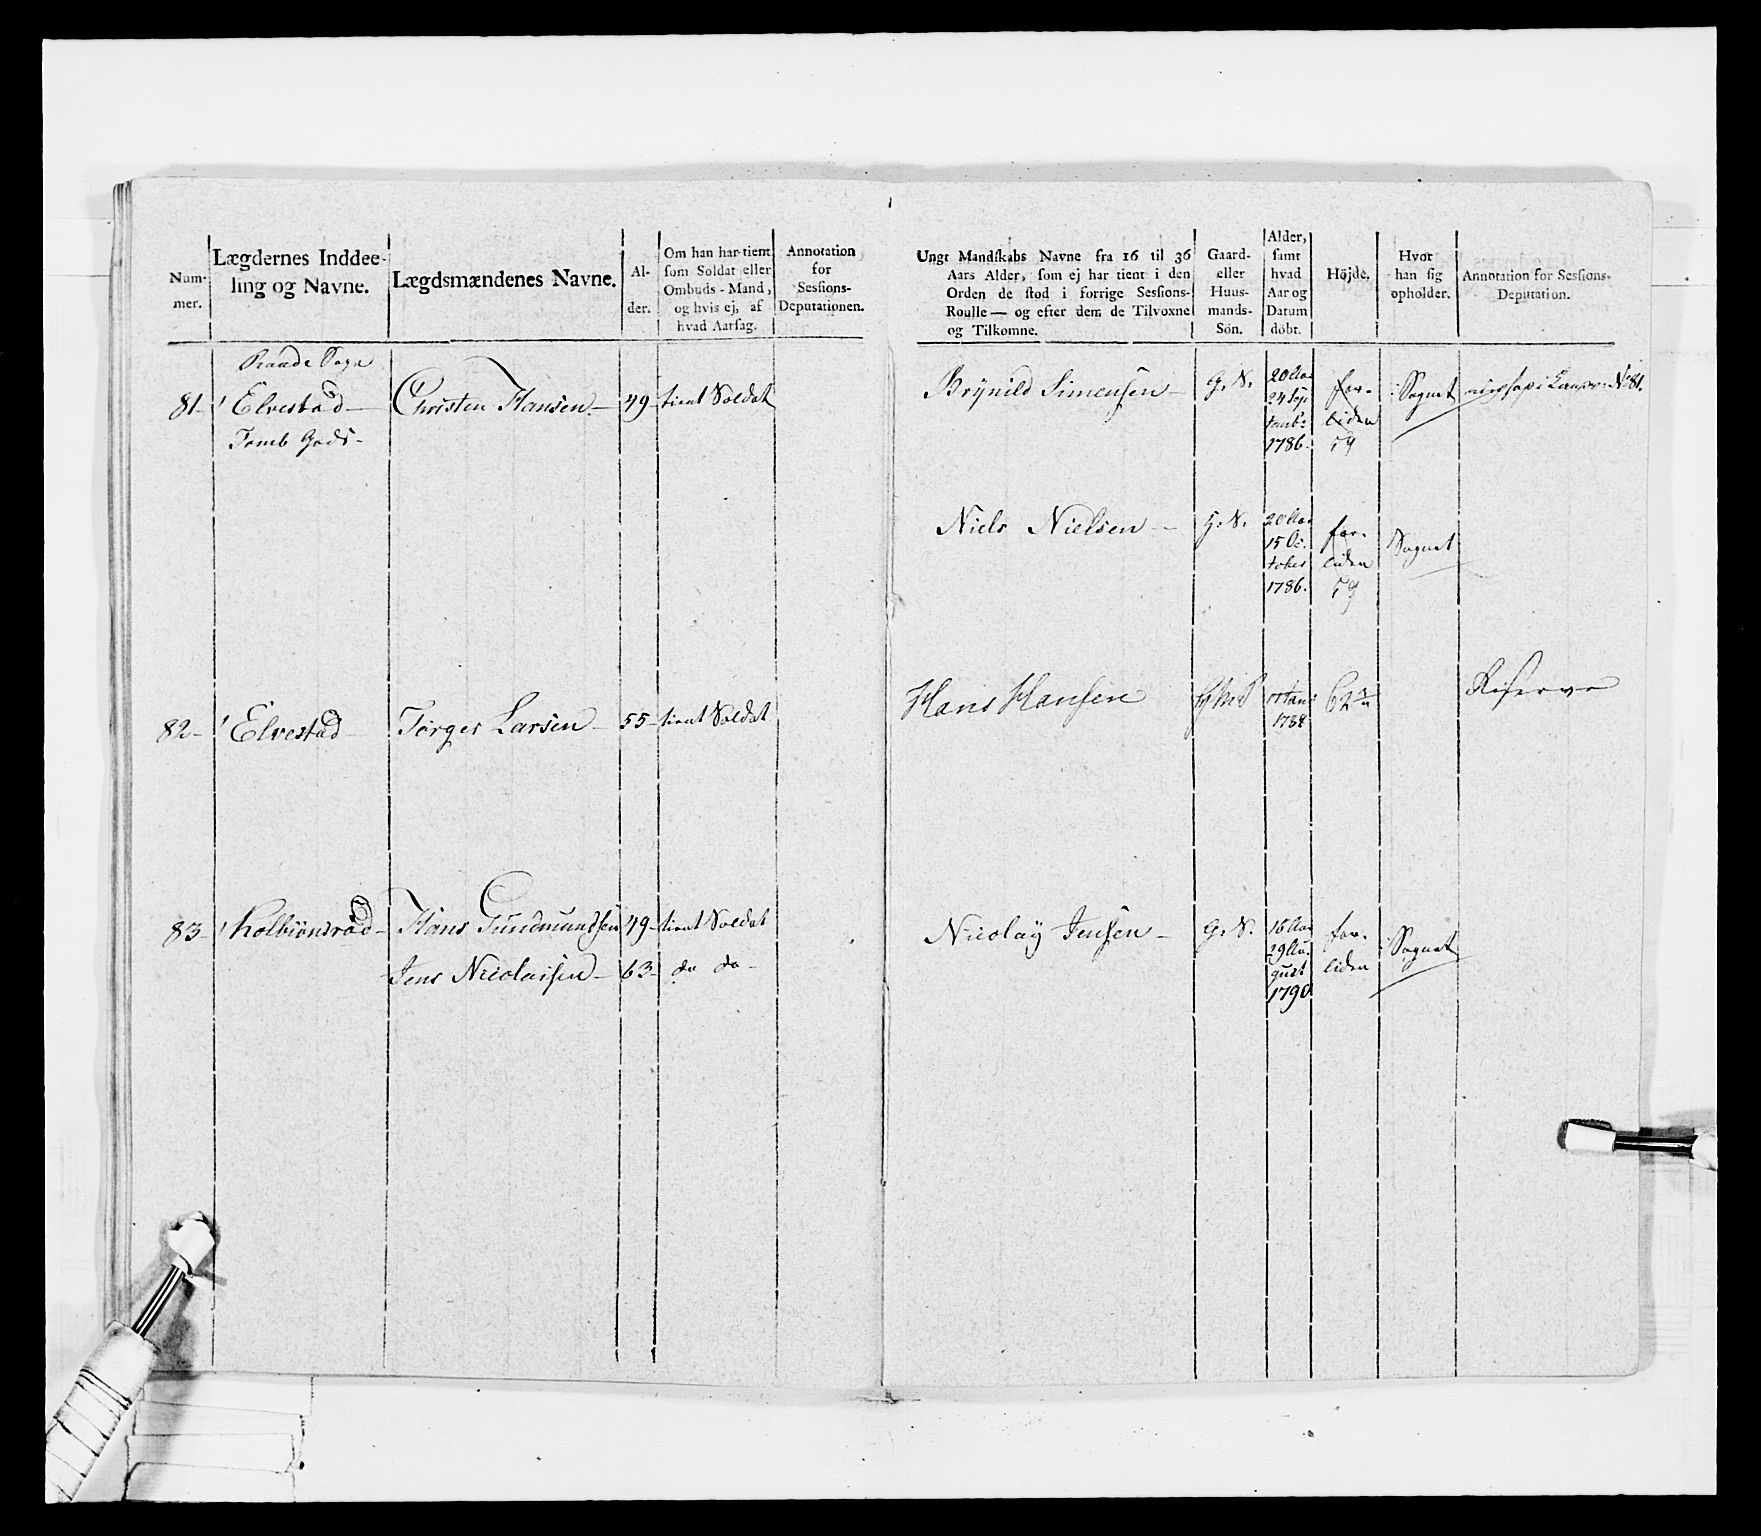 Num-
mer.
Lægdernes Inddee-
ling og Navne.
Lægdsmændenes Navne.
Al-
der.
Om han har tient
som Soldat eller
Ombuds-Mand,
og hvis ej, af
hvad Aarsag.
Annotation
for
Sessions-
Deputationen.
Raade Sogn
81- Elvestad- Christen Hansen- 49- tient Soldat
Tomb Gods-
82- Elvestad- Törger Larsen- 55- tient Soldat
83- Kolbiönsrød- Hans Gundmundsen 49- tient Soldat
Jens Nicolaisen- 63- do do-
Ungt Mandskabs Navne fra 16 til 36
Aars Alder, som ej har tient i den
Orden de stod i forrige Sessions-
Roulle — og efter dem de Tilvoxne
og Tilkomne.
Gaard-
eller
Huus-
mands-
Sön.
Alder,
samt
hvad
Aar og
Datum
döbt.
Höjde.
Hvor
han sig
opholder.
Annotation for Sessions-
Deputation.
Brynild Simensen- G. S. 20 Aar
24 Sep-
temb:
1786.
for-
liden
59
i Sognet
No 81.
Niels Nielsen- G. S. 20 Aar
15 Oc-
tober
1786.
for-
liden
59
Sognet
Hans Hansen
1788
62
Reserve
Nicolay Jensen- G. S. 16 Aar
29 Au-
gust
1790
for-
liden
i Sognet